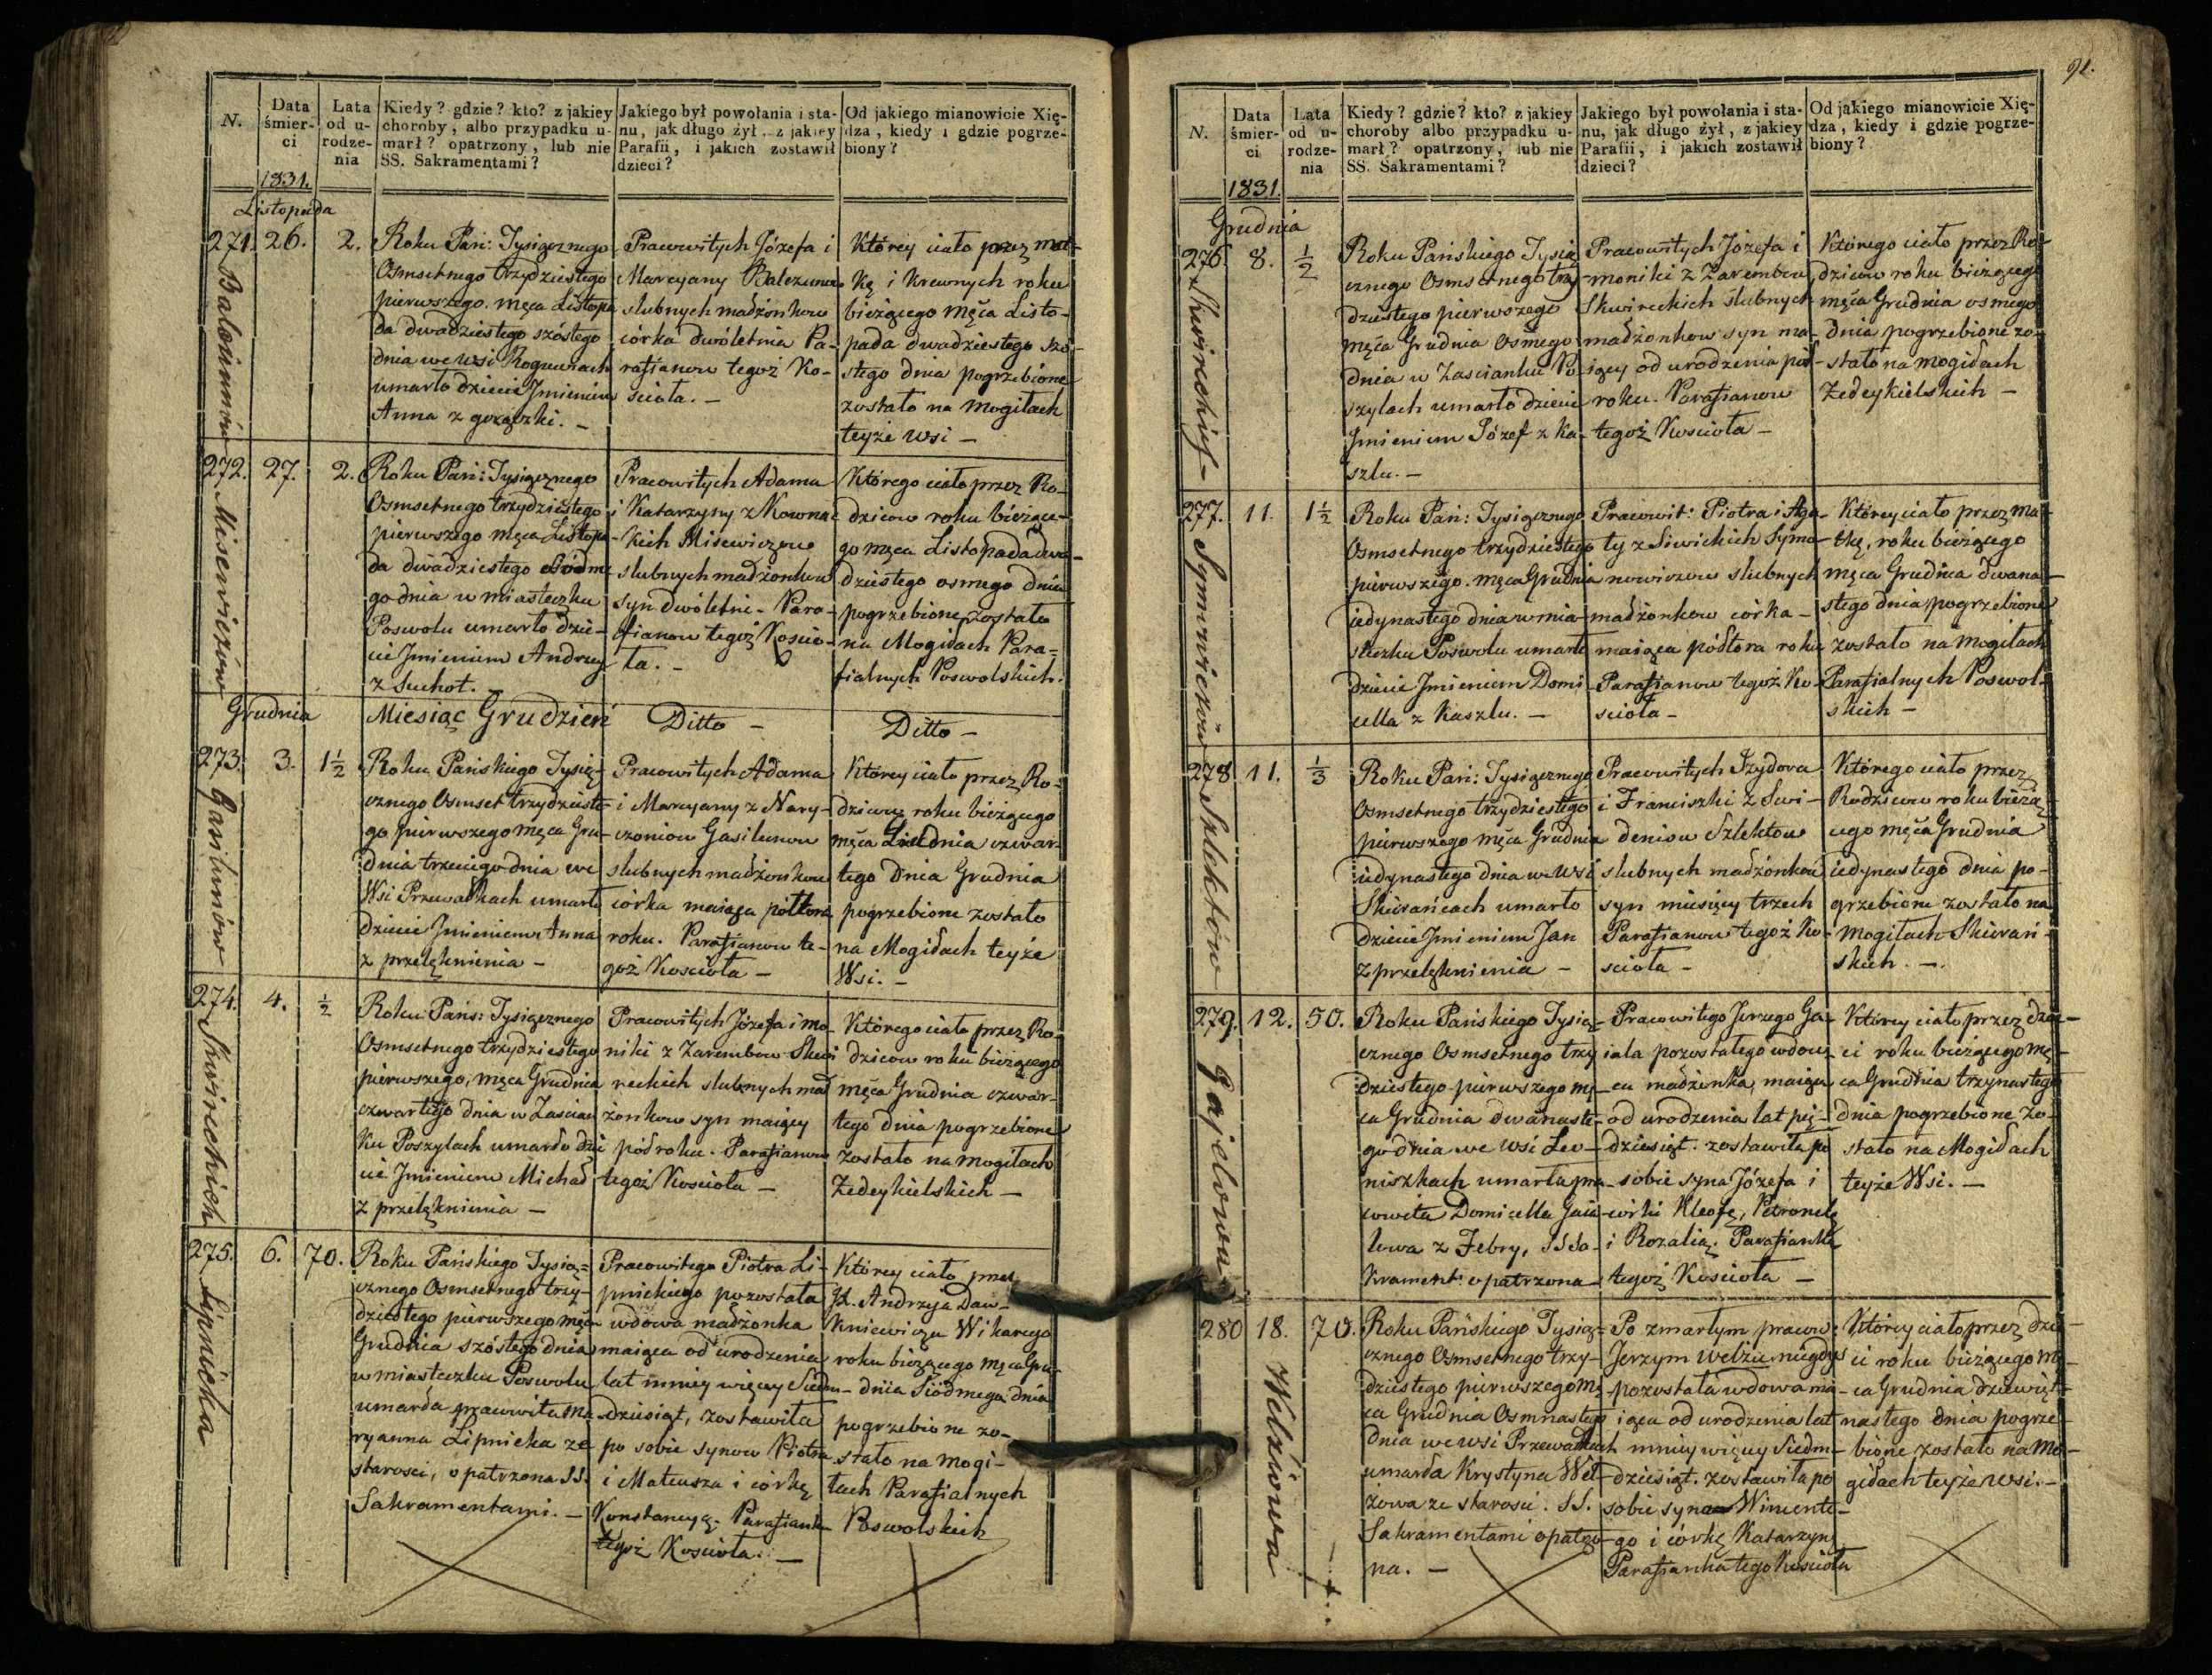 N.
Data śmier-ci
Lata od u-rodze-nia
Kiedy? gdzie? kto? z jakiey
choroby, albo przypadku u-
marł? opatrzony, lub nie
SS. Sakramentami?
Jakiego był powołania i sta-
nu, jak długo żył, z jakiey
Parafii, i jakich zostawił
dzieci?
Od jakiego mianowicie Xię-
dza, kiedy i gdzie pogrze-
biony?
1831.
Listopada
271. 26. 2.
Roku Pań: Tysiącznego
Osmsetnego trzydziestego
pierwszego. męca Listopa
da dwadziestego szóstego
dnia we wsi
umarło dziecie Jmieniem
Anna z gorączki. –
Pracowitych Józefa i
Marcyany
slubnych małżonkow
córka dwóletnia Pa-
rafianow tegoż Ko-
ścioła. –
Którey ciało przez mat-
kę i krewnych roku
bieżącego męca Listo-
pada dwadziestego szo-
stego dnia pogrzebione
zostało na mogiłach
teyże wsi –
272. 27. 2.
Misewiczów
Roku Pań: Tysiącznego
Osmsetnego trzydziestego
pierwszego męca Listopa-
da dwadziestego siódme
go dnia w miasteczku
Poswolu umarło dzie-
cie Jmieniem Andrzey
z Suchot. –
Pracowitych Adama
i Katarzyny z Kownac
kich Misewiczow
slubnych małżonkow
syn dwóletni. – Para-
fianow tegoż Koscio-
ła. –
Którego ciało przez Ro-
dzicow roku bieżące-
go męca Listopada dwa-
dziestego osmego dnia
pogrzebione zostało
na Mogiłach Para-
fialnych Poswolskich.
Grudnia
Miesiąc Grudzień
Ditto –
Ditto –
273. 3. 1½
Gasilunów
Roku Pańskiego Tysią-
cznego Osmset trzydzieste-
go pierwszego męca Gru-
dnia trzeciego dnia we
Wsi Przewałkach umarło
dziecie Jmieniem Anna
z przelęknienia –
Pracowitych Adama
i Marcyany z Nary-
czoniow Gasilunow
slubnych małżonkow
córka maiąca półtora
roku. Parafianow te-
goż Kościoła –
Którey ciało przez Ro-
dzicow roku bieżącego
męca czwar-
tego dnia Grudnia
pogrzebione zostało
na Mogiłach teyże
Wsi. –
274. 4. ½
Skwireckich
Roku Pańs: Tysiącznego
Osmsetnego trzydziestego
pierwszego, męca Grudnia
czwartego dnia w Zascian
ku Poszylach umarło dzie
cie Jmieniem Michał
z przelęknienia –
Pracowitych Józefa i Mo-
niki z Zarembow Skwi
reckich slubnych mał
żonkow syn maiący
pół roku. Parafianow
tegoż Kościoła –
Którego ciało przez Ro-
dzicow roku bieżącego
męca Grudnia czwar-
tego dnia pogrzebione
zostało na mogiłach
Zedeykielskich –
275. 6. 70.
Lipnicka
Roku Pańskiego Tysią-
cznego Osmsetnego trzy-
dziestego pierwszego męca
Grudnia szóstego dnia
w miasteczku Poswolu
umarła pracowita Ma
ryanna Lipnicka ze
starosci, opatrzona SS.
Sakramentami. –
Pracowitego Piotra Li-
pnickiego pozostała
wdowa małżonka
maiąca od urodzenia
lat mniey więcey Siedm-
dziesiąt, zostawiła
po sobie synow Piotra
i Mateusza i córkę
Konstancyą. Parafianka
tegoż Kościoła. –
Którey ciało przez
X. Andrzeja Daw-
kniewicza Wikarego
roku bieżącego męca Gru-
dnia Siódmego dnia
pogrzebione zo-
stało na mogi-
łach Parafialnych
Poswolskich
91.
N.
Data śmier-ci
Lata od u-rodze-nia
Kiedy? gdzie? kto? z jakiey
choroby albo przypadku u-
marł? opatrzony, lub nie
SS. Sakramentami?
Jakiego był powołania i sta-
nu, jak długo żył, z jakiey
Parafii, i jakich zostawił
dzieci?
Od jakiego mianowicie Xię-
dza, kiedy i gdzie pogrze-
biony?
1831.
Grudnia
276. 8. ½
Skwireckich
Roku Pańskiego Tysią
cznego Osmsetnego trzy-
dziestego pierwszego
męca Grudnia Osmego
dnia w Zascianku Po-
szylach umarło dziecie
Jmieniem Józef z Ka-
szlu. –
Pracowitych Józefa i
moniki z Zarembow
Skwireckich slubnych
małżonkow syn ma-
iący od urodzenia pół
roku. Parafianow
tegoż Kościoła –
Którego ciało przez Ro-
dzicow roku bieżącego
męca Grudnia osmego
dnia pogrzebione zo-
stało na mogiłach
Zedeykielskich –
277. 11. 1½
Symowiczow
Roku Pań: Tysiącznego
Osmsetnego trzydziestego
pierwszego. męca Grudnia
iedynastego dnia w mia-
steczku Poswolu umarło
dziecie Jmieniem Domi-
cella z Kaszlu. –
Pracowit: Piotra i Aga-
ty z Siwickich Symo-
nowiczow slubnych
małżonkow córka –
maiąca półtora roku
Parafianow tegoż Ko-
ścioła –
Którey ciało przez Ma-
tkę, roku bieżącego
męca Grudnia dwana-
stego dnia pogrzebione
zostało na mogiłach
Parafialnych Poswol-
skich –
278 11. ⅓
Szlektów
Roku Pań: Tysiącznego
Osmsetnego trzydziestego
pierwszego męca Grudnia
iedynastego dnia w Wsi
Skierańcach umarło
dziecie Jmieniem Jan
z przelęknienia –
Pracowitych Izydora
i Franciszki z Swi-
deniow Szlektow
slubnych małżonków
syn miesięcy trzech
Parafianow tegoż Ko-
ścioła –
Którego ciało przez
Rodzicow roku bieżą
cego męca Grudnia
iedynastego dnia po-
grzebione zostało na
Mogiłach Skierań-
skich. –
279. 12. 50.
Gajelowa
Roku Pańskiego Tysią-
cznego Osmsetnego trzy
dziestego pierwszego mę-
ca Grudnia dwanaste-
go dnia we wsi Leo-
niszkach umarła pra-
cowita Domicella Gaie
lowa z Febry, SS Sa-
krament: opatrzona –
Pracowitego Jerzego Ga-
iala pozostałego wdow-
ca małżonka, maiąca
od urodzenia lat pię-
dziesiąt. zostawiła po
sobie syna Józefa i
córki Kleofę, Petronelę
i Rozalią. Parafianka
tegoż Kościoła –
Którey ciało przez dzie-
ci roku bieżącego mę-
ca Grudnia trzynastego
dnia pogrzebione zo-
stało na Mogiłach
teyże Wsi. –
280 18. 70.
Welżiowa
Roku Pańskiego Tysią-
cznego Osmsetnego trzy-
dziestego pierwszego mę
ca Grudnia Osmnastego
dnia we wsi Przewałkach
umarła Krystyna Wel-
żowa ze starosci. SS.
Sakramentami opatrzo-
na. –
Po zmarłym pracow:
Jerzym Welżiu niegdyś
pozostała wdowa ma-
iąca od urodzenia lat
mniey więcey Siedm-
dziesiąt. zostawiła po
sobie syna Wincente-
go i córkę Katarzynę
Parafianka tego Kościoła
Którey ciało przez dzie-
ci roku bieżącego mę-
ca Grudnia dziewięt-
nastego dnia pogrze-
bione zostało na Mo-
giłach teyże wsi. –